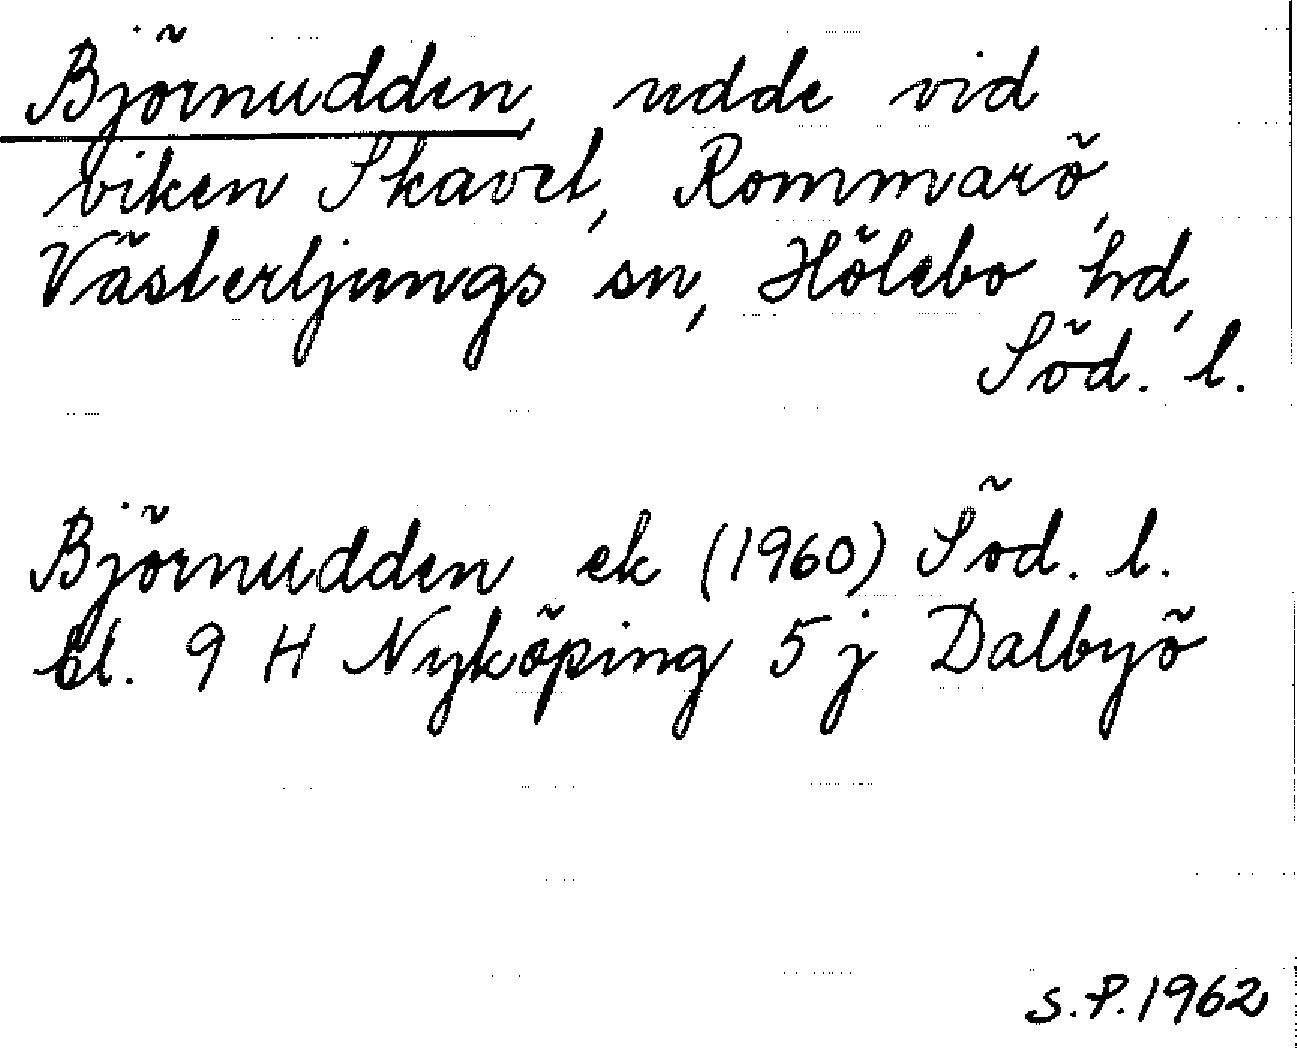 Björnudden, udde vid
viken Skavet, Rommarö,
Västerljungs sn, Hölebo hd,
Söd. l.
Björnudden ek (1960) Söd. l.
bl. 9 H Nyköping 5 j Dalbyö
S.P. 1962